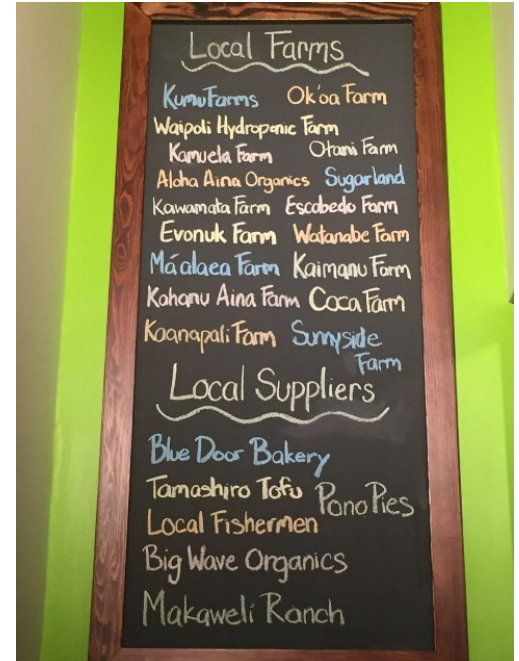 Local Farms
Kumu Farms Ok'oa Farm
Waipoli Hydroponic Farm
Kamuela Farm Otani Farm
Aloha Aina Organics Sugarland
Kawamata Farm Escobedo Farm
Evonuk Farm Watanabe Farm
Má'alaea Farm Kaimanu Farm
Kahanu Aina Farm Coca Farm
Kaanapali Farm Sunnyside
Farm
Local Suppliers
Blue Door Bakery
Tamashiro Tofu Pono Pies
Local Fishermen
Big Wave Organics
Makaweli Ranch